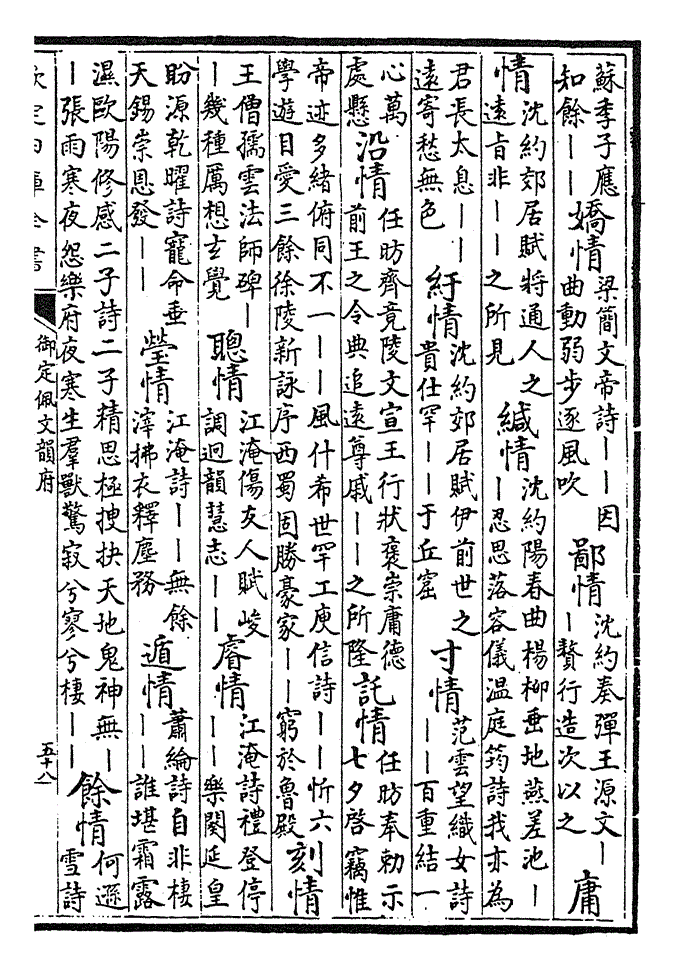 蘇季子應知餘｜｜嬌情梁簡文帝詩｜｜因曲動弱步逐風吹鄙情沈約奏彈王源文｜｜贅行造次以之庸
情沈約郊居賦將通人之遠旨非｜｜之所見緘情沈約陽春曲楊柳垂地燕差池｜｜忍思落容儀溫庭筠詩我亦為
君長太息｜｜遠寄愁無色紆情沈約郊居賦伊前世之貴仕罕｜｜于丘窟寸情范雲望織女詩｜｜百重結一
心萬處懸沿情任昉齊竟陵文宣王行狀褒崇庸德前王之令典追遠尊戚｜｜之所隆託情任昉奉勅示七夕啓竊惟
帝迹多緒俯同不一｜｜風什希世罕工庾信詩｜｜忻六學遊目愛三餘徐陵新詠序西蜀固勝豪家｜｜窮於魯殿刻情
王僧孺雲法師碑｜｜幾種厲想玄覺聰情江淹傷友人賦峻調迥韻慧志｜｜睿情江淹詩禮登停｜｜樂闋延皇
盼源乾曜詩寵命垂天錫崇恩發｜｜瑩情江淹詩｜｜無餘滓拂衣釋塵務遁情蕭綸詩自非棲｜｜誰堪霜露
濕歐陽修感二子詩二子精思極搜抉天地鬼神無｜｜張雨寒夜怨樂府夜寒生羣獸驚寂兮寥兮棲｜｜餘情何遜雪詩
欽定四庫全書
御定佩文韻府
五十八